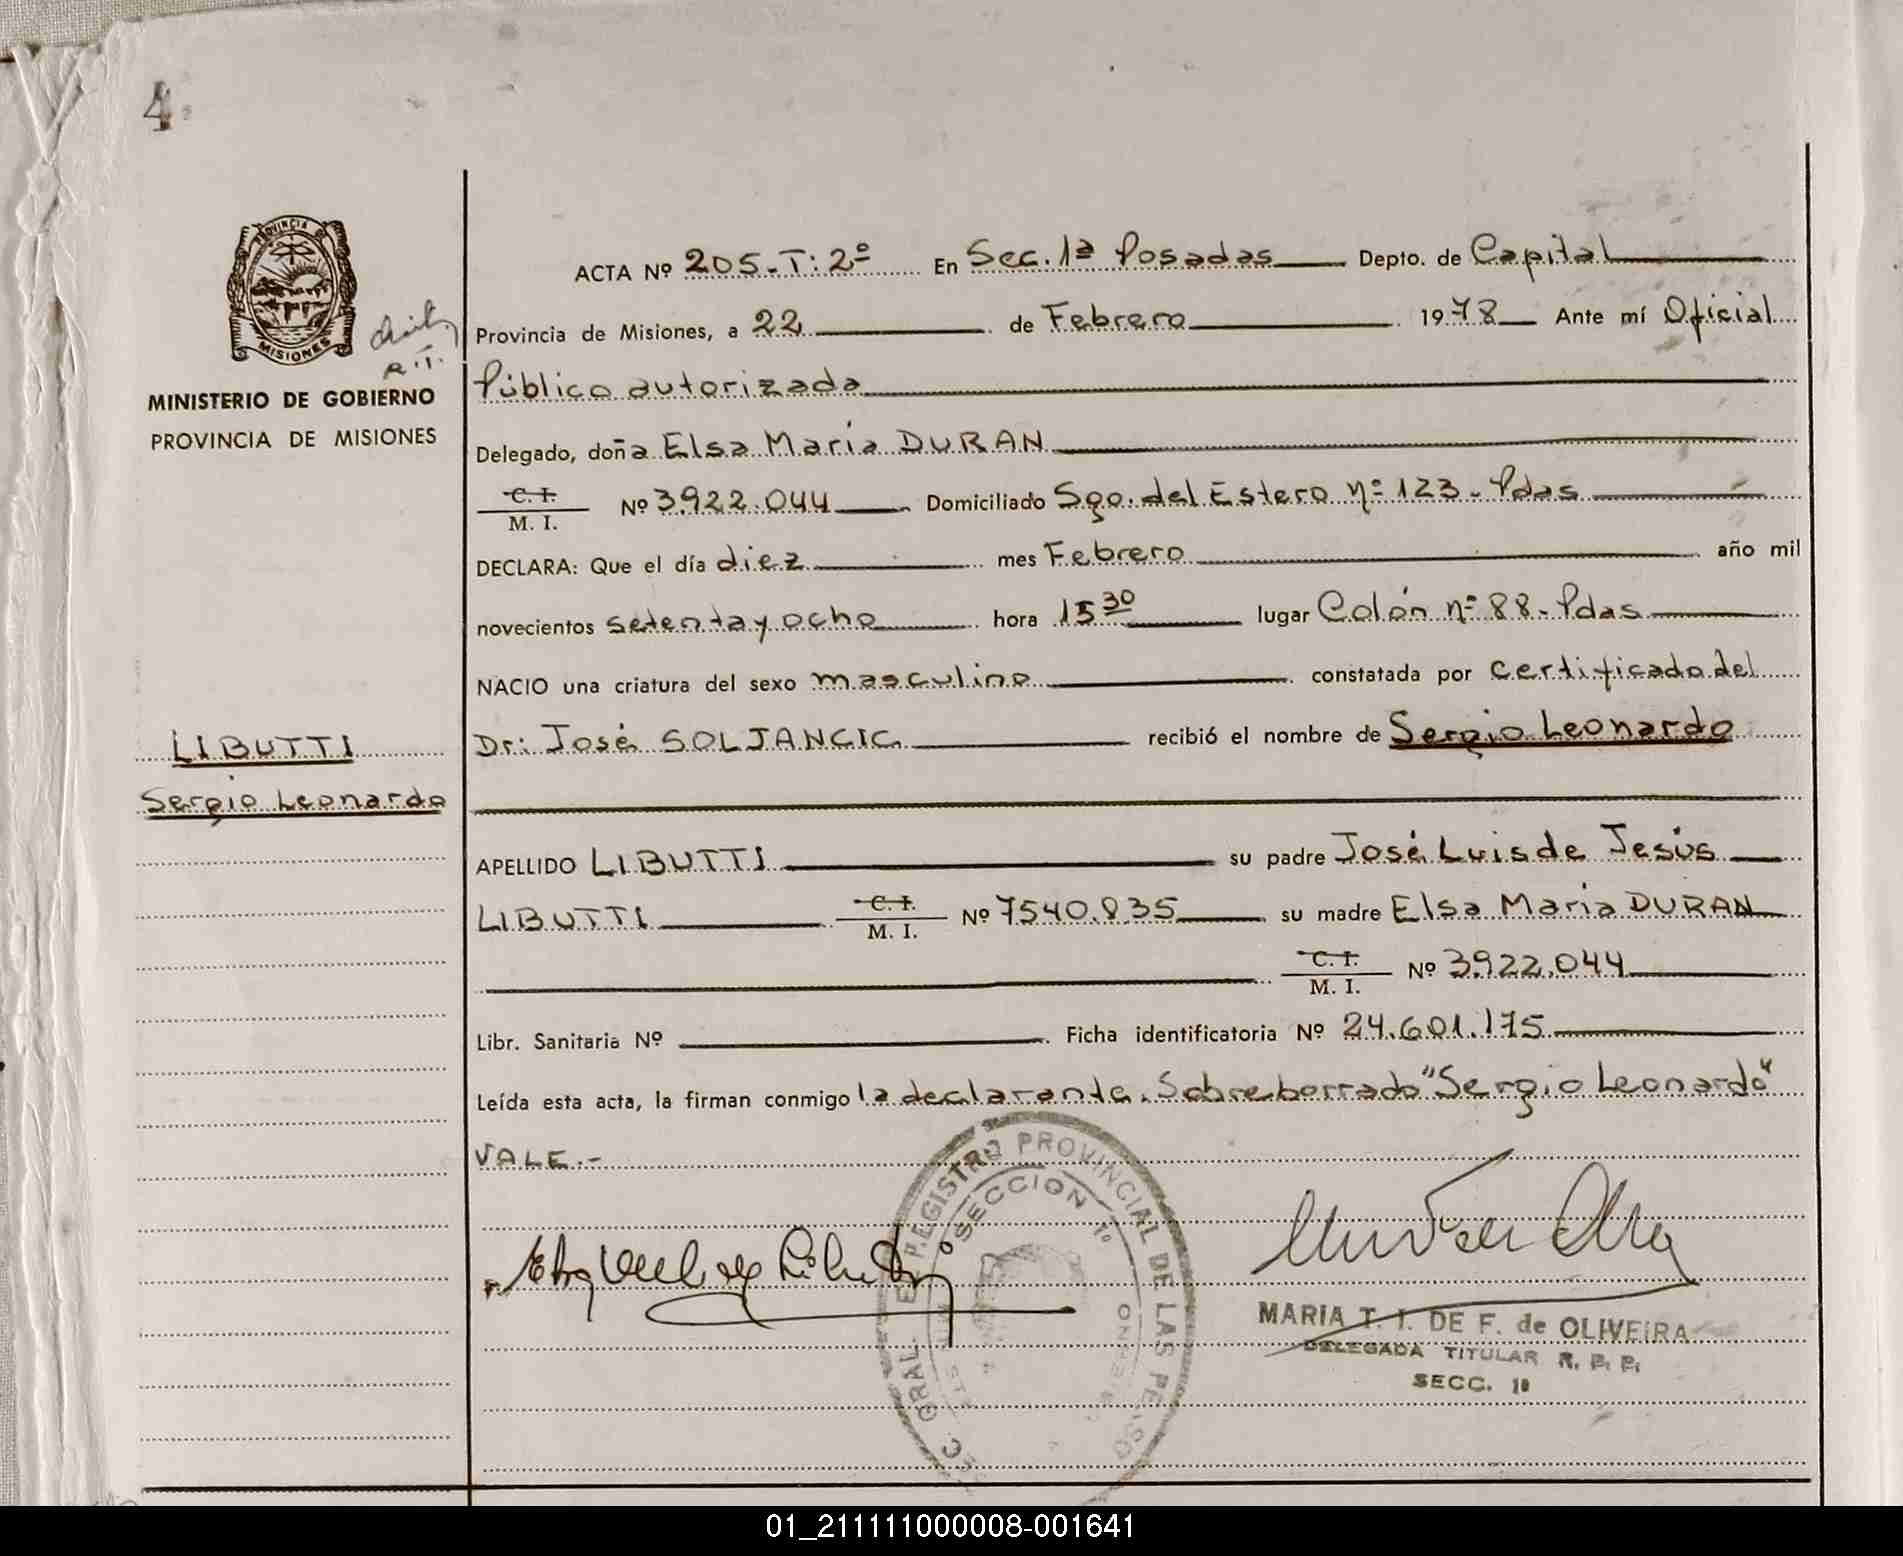 4
PROVINCIA DE
MISIONES
R.T.
MINISTERIO DE GOBIERNO
PROVINCIA DE MISIONES
LIBUTTI
Sergio Leonardo
ACTA Nº 205-T:2º En Sec.1ª Posadas Depto. de Capital
Provincia de Misiones, a 22 de Febrero 1978 Ante mí Oficial
Público autorizada
Delegado, doña Elsa María DURAN
C. I. M. I. Nº 3.922.044 Domiciliado Sgo. del Estero nº 123-Pdas
DECLARA: Que el día diez mes Febrero año mil
novecientos setenta y ocho hora 15 30 lugar Colón nº 88-Pdas
NACIO una criatura del sexo masculino constatada por certificado del
Dr: José SOLJANCIC recibió el nombre de Sergio Leonardo
APELLIDO LIBUTTI su padre José Luis de Jesús
LIBUTTI C. I. M. I. Nº 7540.835 su madre Elsa María DURAN
C. I. M. I. Nº 3.922.044
Libr. Sanitaria Nº Ficha identificatoria Nº 24.601.175
Leída esta acta, la firman conmigo la declarante. Sobreborrado "Sergio Leonardo"
VALE.-
GRAL. REGISTRO PROVINCIAL DE LAS PERSO
SECCION 1º
MARIA T. I. DE F. de OLIVEIRA
DELEGADA TITULAR R. P. P.
SECC. 1ª
01_211111000008-001641